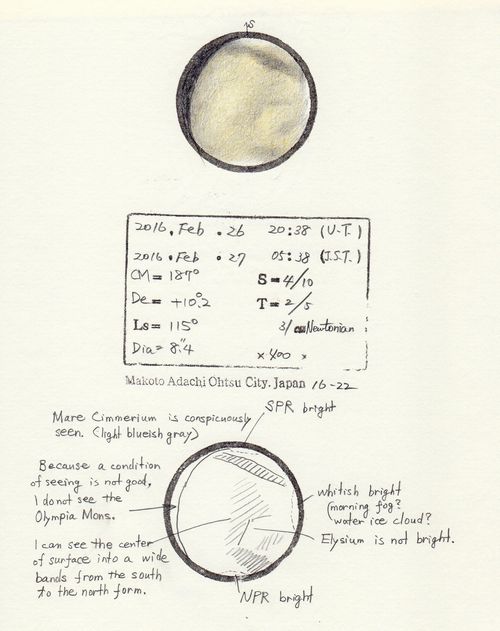 S
2016. Feb. 26 20:38 (U.T.)
2016. Feb. 27 05:38 (J.S.T.)
CM= 187° S=4/10
De= +10.°2 T=2/5
Ls= 115° 31 cm Newtonian
Dia= 8."4 ×400 ×
Makoto Adachi Ohtsu City. Japan 16-22
SPR bright
Mare Cimmerium is conspicuously
seen. (light blueish gray)
Because a condition
of seeing is not good,
I do not see the
Olympia Mons.
whitish bright
(morning fog?
water ice cloud?
Elysium is not bright.
I can see the center
of surface into a wide
bands from the south
to the north form.
NPR bright